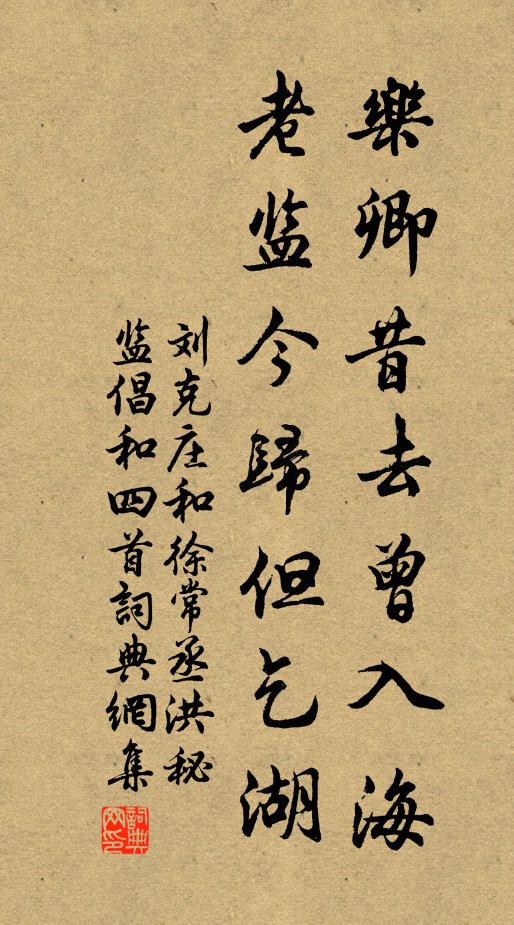 樂卿昔去曾入海
老监今歸但乞湖
刘克庄和徐常丞洪秘
监倡和四首詞典網集
詞典网印